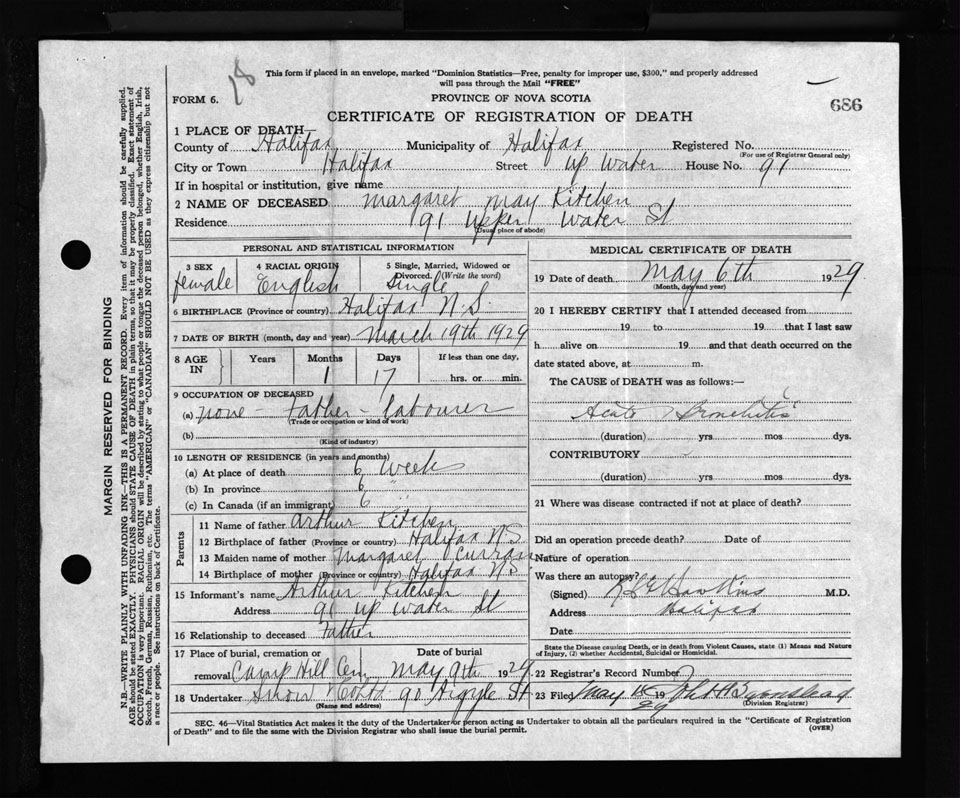 This form if placed in an envelope, marked "Dominion Statistics—Free, penalty for improper use, $300," and properly addressed
will pass through the Mail "FREE"
FORM 6.
78
PROVINCE OF NOVA SCOTIA
686
CERTIFICATE OF REGISTRATION OF DEATH
1 PLACE OF DEATH
County of Halifax Municipality of Halifax Registered No.
(For use of Registrar General only)
City or Town Halifax Street Up Water House No. 91
If in hospital or institution, give name
2 NAME OF DECEASED Margaret May Kitchen
Residence 91 Upper Water St
(Usual place of abode)
PERSONAL AND STATISTICAL INFORMATION
3 SEX 4 RACIAL ORIGIN 5 Single, Married, Widowed or Divorced. (Write the word)
female English Single
6 BIRTHPLACE (Province or country) Halifax N.S.
7 DATE OF BIRTH (month, day and year) March 19th 1929
8 AGE IN Years Months Days If less than one day,
1 17 hrs. or min.
9 OCCUPATION OF DECEASED
(a) none - father - labourer
(Trade or occupation or kind of work)
(b)
(Kind of industry)
10 LENGTH OF RESIDENCE (in years and months)
(a) At place of death 6 Weeks
(b) In province 6 "
(c) In Canada (if an immigrant) 6 "
Parents
11 Name of father Arthur Kitchen
12 Birthplace of father (Province or country) Halifax N.S
13 Maiden name of mother Margaret Curran
14 Birthplace of mother (Province or country) Halifax N S
15 Informant's name Arthur Kitchen
Address 91 Up Water St
16 Relationship to deceased Father
17 Place of burial, cremation or removal Date of burial
Camp Hill Cem May 9th 1929
18 Undertaker Snow & Co Ltd 90 Argyle St
(Name and address)
MEDICAL CERTIFICATE OF DEATH
19 Date of death May 6th 1929
(Month, day and year)
20 I HEREBY CERTIFY that I attended deceased from
19 to 19 that I last saw
h alive on 19 and that death occurred on the
date stated above, at m.
The CAUSE of DEATH was as follows:—
Acute Bronchitis
(duration) yrs mos dys.
CONTRIBUTORY
(duration) yrs mos dys.
21 Where was disease contracted if not at place of death?
Did an operation precede death? Date of
Nature of operation
Was there an autopsy?
(Signed) Hawkins M.D.
Address Halifax
Date
State the Disease causing Death, or in death from Violent Causes, state (1) Means and Nature
of Injury, (2) whether Accidental, Suicidal or Homicidal.
22 Registrar's Record Number
23 Filed May 19 29
(Division Registrar)
SEC. 46—Vital Statistics Act makes it the duty of the Undertaker or person acting as Undertaker to obtain all the particulars required in the "Certificate of Registration
of Death" and to file the same with the Division Registrar who shall issue the burial permit.
(OVER)
MARGIN RESERVED FOR BINDING
N.B.—WRITE PLAINLY WITH UNFADING INK—THIS IS A PERMANENT RECORD. Every item of information should be carefully supplied.
AGE should be stated EXACTLY. PHYSICIANS should STATE CAUSE OF DEATH in plain terms, so that it may be properly classified. Exact statement of
OCCUPATION is very important. RACIAL ORIGIN will be described by stating to what people or tongue the deceased person belonged, whether English, Irish,
Scotch, French, German, Russian, Ruthenian, etc. The terms "AMERICAN" or "CANADIAN" SHOULD NOT BE USED as they express citizenship but not
a race or people. See instructions on back of Certificate.